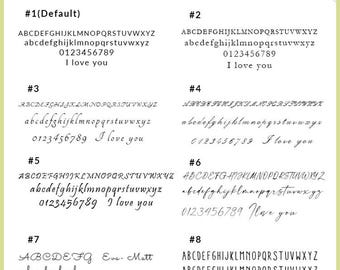 #1(Default)
ABCDEFGHIJKLMNOPQRSTUVWXYZ
abcdefghijklmnopqrstuvwxyz
0123456789
I love you
#2
ABCDEFGHIJKLMNOPQRSTUVWXYZ
abcdefghijklmnopqrstuvwxyz
0123456789
I love you
#3
ABCDEFGHIJKLMNOPQRSTUVWXYZ
abcdefghijklmnopqrstuvwxyz
0123456789 I love you
#4
ABCDEFGHIJKLMNOPQRSTUVWXYZ
abcdefghijklmnopqrstuvwxyz
0123456789 I love you
#5
ABCDEFGHIJKLMNOPQRSTUVWXYZ
abcdefghijklmnopqrstuvwxyz
0123456789 I love you
#6
ABCDEFGHIJKLMNOPQRSTUVWXYZ
abcdefghijklmnopqrstuvwxyz
0123456789 I love you
#7
ABCDEFG Eva Matt
#8
ABCDEFGHIJKLMNOPQRSTUVWXYZ